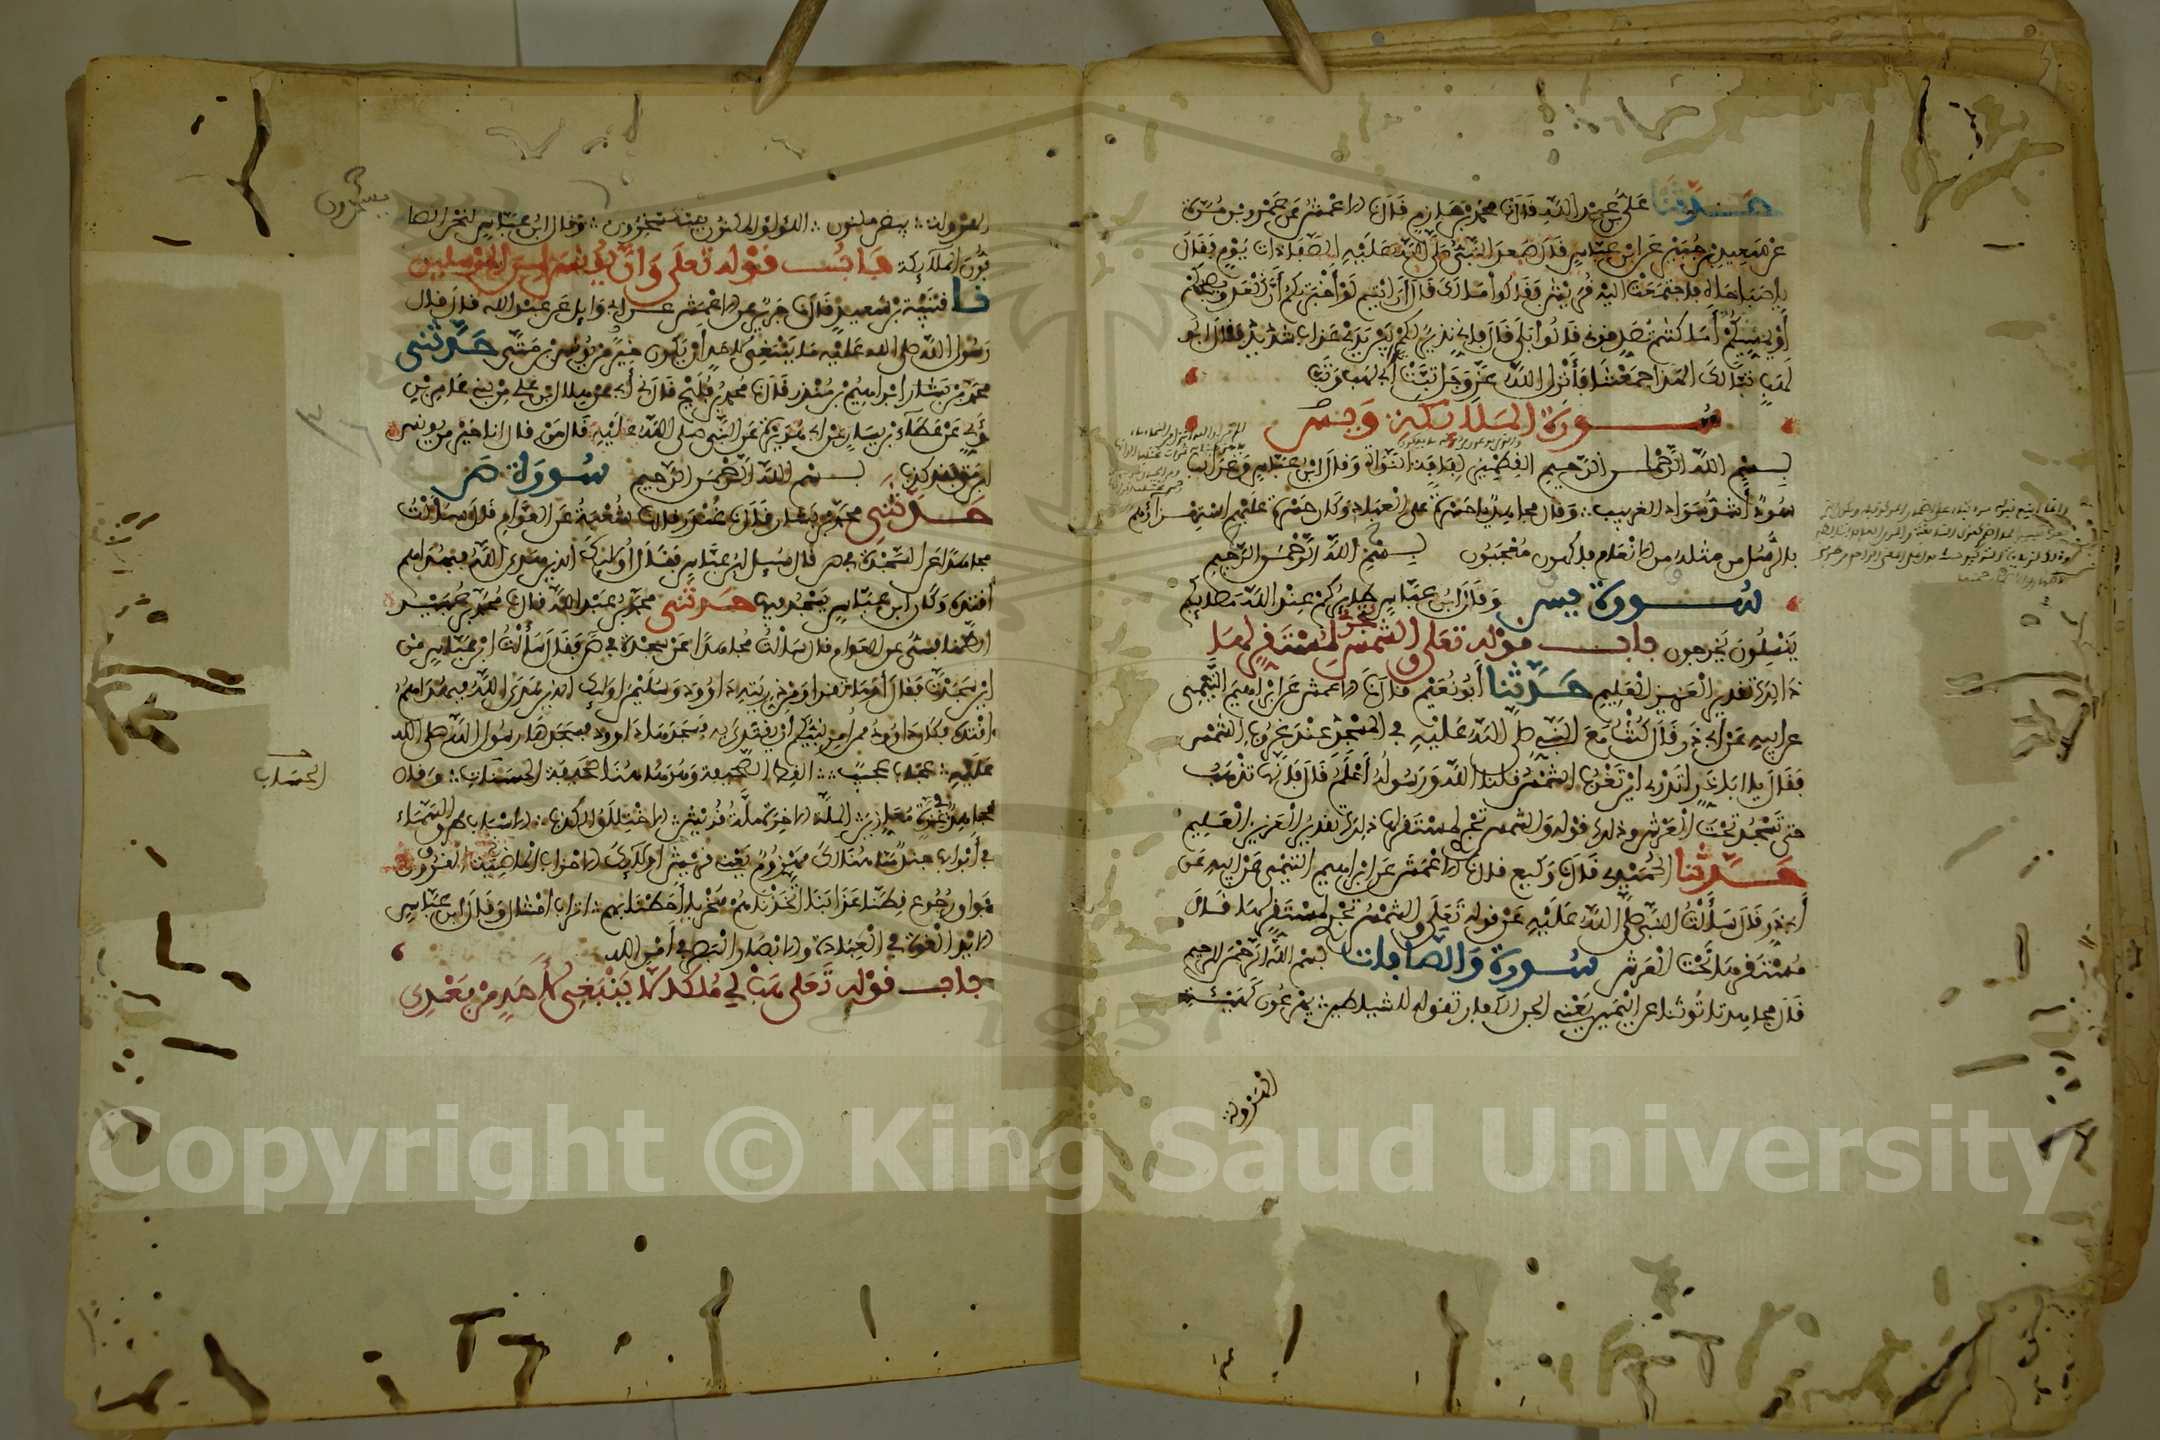 حدثنا علي بن عبد الله قال نا محمد بن خازم قال نا الاعمش عن عمرو بن مرة
عن سعيد بن جبير عن ابن عباس قال صعد النبي صلى الله عليه الصفا ذات يوم فقال
يا صباحاه فاجتمعت اليه قريش وقالوا مالك قال ارأيتم لو أخبرتكم أن العدو يصبحكم
أو يمسيكم أما كنتم تصدقونني قالوا بلى قال فإني نذير لكم بين يدي عذاب شديد فقال أبو
لهب تبا لك ألهذا جمعتنا فأنزل الله عز وجل تبت يدا أبي لهب وتب
سورة الملائكة ويس
بسم الله الرحمن الرحيم القطمير لفافة النواة وقال ابن عباس وغرابيب
سود أشد سواد الغربيب وقال مجاهد يا حسرة على العباد وكان حسرة عليهم استهزاؤهم
بالرسل من مثله من الانعام فاكهون معجبون بسم الله الرحمن الرحيم
سورة يس وقال ابن عباس طائركم عند الله مصائبكم
ينسلون يخرجون باب قوله تعلى والشمس تجري لمستقر لها
ذلك تقدير العزيز العليم حدثنا أبو نعيم قال نا الاعمش عن ابراهيم التيمي
عن ابيه عن ابي ذر قال كنت مع النبي صلى الله عليه في المسجد عند غروب الشمس
فقال يا ابا ذر اتدري اين تغرب الشمس قلنا الله ورسوله أعلم قال فإنها تذهب
حتى تسجد تحت العرش وذلك قوله والشمس تجري لمستقر لها ذلك تقدير العزيز العليم
حدثنا الحميدي قال نا وكيع قال نا الاعمش عن ابراهيم التيمي عن ابيه عن
أبي ذر قال سألت النبي صلى الله عليه عن قوله تعلى والشمس تجري لمستقر لها قال
مستقرها تحت العرش سورة والصافات بسم الله الرحمن الرحيم
قال مجاهد تأتوننا عن اليمين يعني الجن الكفار تقوله للشيطان ينزعون كهيئة
الهرولة
الهرولة بيض مكنون اللؤلؤ المكنون يسخرون وقال ابن عباس لنحن الصا
فون الملائكة باب قوله تعلى وإن يونس لمن المرسلين
نا قتيبة بن سعيد قال نا جرير عن الاعمش عن ابي وايل عن عبد الله قال قال
رسول الله صلى الله عليه ما ينبغي لاحد أن يكون خيرا من يونس بن متى حدثني
ابراهيم بن منذر قال نا محمد بن فليح قال ني أبي عن هلال بن علي من بني عامر بن
لؤي عن عطاء بن يسار عن ابي هريرة عن النبي صلى الله عليه قال من قال انا خير من يونس
ابن متى فقد كذب بسم الله الرحمن الرحيم سورة ص
حدثني محمد بن بشار قال نا غندر قال نا شعبة عن العوام قال سألت
مجاهدا عن السجدة في ص قال سيل ابن عباس فقال أولئك الذين هدى الله فبهداهم
اقتده وكان ابن عباس يسجد فيها حدثني محمد بن عبد الله قال نا محمد بن عبيد
الطنافسي عن العوام قال سألت مجاهدا عن سجدة في ص فقال سألت ابن عباس من
اين سجدت فقال أوما تقرأ ومن ذريته داوود وسليمن اولئك الذين هدى الله فبهداهم
اقتده فكان داوود ممن أمر نبيكم أن يقتدي به فسجدها داوود فسجدها رسول الله صلى الله
عليه عجاب عجيب القط الصحيفة وهو هاهنا صحيفة الحسنات وقال
مجاهد في عزة معازين الملة الاخرة ملة قريش الاختلاق الكذب الاسباب طرق السماء
في أبوابها جند ما هنالك مهزوم يعني قريش اولئك الاحزاب القرون الماضية
فواق رجوع قطنا عذابنا اتخذناهم سخريا أحطنا بهم اتراب امثال وقال ابن عباس
الايد القوة في العبادة والابصار البصر في أمر الله
باب قوله تعلى هب لي ملكا لا ينبغي لأحد من بعدي
يسخرون
الحساب
Copyright © King Saud University
1957